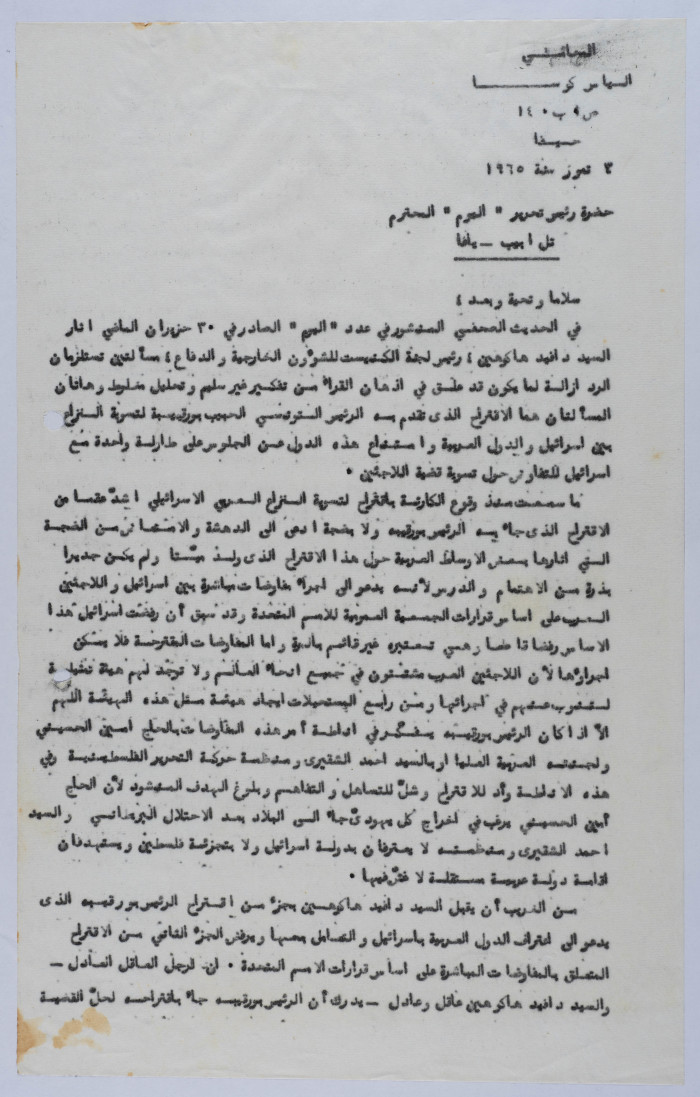 المحامي
الياس كوسا
ص ٠ ب ٠ ١٤٠
حيفا
٣ تموز سنة ١٩٦٥
حضرة رئيس تحرير " اليوم " المحترم
تل ابيب – يافا
سلاما وتحية وبعد ،
في الحديث الصحفي المنشور في عدد " اليوم " الصادر في ٣٠ حزيران الماضي اثار
السيد دافيد هاكوهين ، رئيس لجنة الكنيست للشؤون الخارجية والدفاع ، مسألتين تستلزمان
الرد ازالة لما يكون قد علق في اذهان القراء من تفكير غير سليم وتحليل مغلوط وهاتان
المسألتان هما الاقتراح الذى تقدم به الرئيس التونسي الحبيب بورقيبة لتسوية النزاع
بين اسرائيل والدول العربية وامتناع هذه الدول عن الجلوس على طاولة واحدة مع
اسرائيل للتفاوض حول تسوية قضية اللاجئين ٠
ما سمعت منذ وقوع الكارثة باقتراح لتسوية النزاع العربي الاسرائيلي اشدّ عقما من
الاقتراح الذى جاء به الرئيس بورقيبه ولا بضجة ادعى الى الدهشة والامتعاض من الضجة
التي اثارها بعض الاوساط العربية حول هذا الاقتراح الذى ولد ميّتا ولم يكن جديرا
بذرة من الاهتمام والدرس لأنه يدعو الى اجراء مفاوضات مباشرة بين اسرائيل واللاجئين
العرب على اساس قرارات الجمعية العمومية للامم المتحدة وقد سبق أن رفضت اسرائيل هذا
الاساس رفضا قاطعا وهي تعتبره غير قائم بالمرة واما المفاوضات المقترحة فلا يمكن
اجراؤها لأن اللاجئين العرب مشتتون في جميع انحاء العالم ولا توجد لهم هيئة تمثيلية
لتنوب عنهم في اجرائها ومن رابع المستحيلات ايجاد هيئة مثل هذه الهيئة اللهم
الاّ اذا كان الرئيس بورقيبه يفكّر في اناطة أمر هذه المفاوضات بالحاج امين الحسيني
ولجنته العربية العليا او بالسيد احمد الشقيرى ومنظمة حركة التحرير الفلسطينية وفي
هذه الاناطة وأد للاقتراح وشلّ للتساهل والتفاهم وبلوغ الهدف المنشود لأن الحاج
أمين الحسيني يرغب في اخراج كل يهودىّ جاء الى البلاد بعد الاحتلال البريطاني والسيد
احمد الشقيرى ومنظمته لا يعترفان بدولة اسرائيل ولا بتجزئة فلسطين ويستهدفان
اقامة دولة عربية مستقلة لا غشّ فيها ٠
من الغريب أن يقبل السيد دافيد هاكوهين بجزء من اقتراح الرئيس بورقيبه الذى
يدعو الى اعتراف الدول العربية باسرائيل والتعامل معها ويرفض الجزء الثاني من الاقتراح
المتعلق بالمفاوضات المباشرة على اساس قرارات الامم المتحدة ٠ ان الرجل العاقل العادل –
والسيد دافيد هاكوهين عاقل وعادل – يدرك أن الرئيس بورقيبه جاء باقتراحه لحلّ القضية